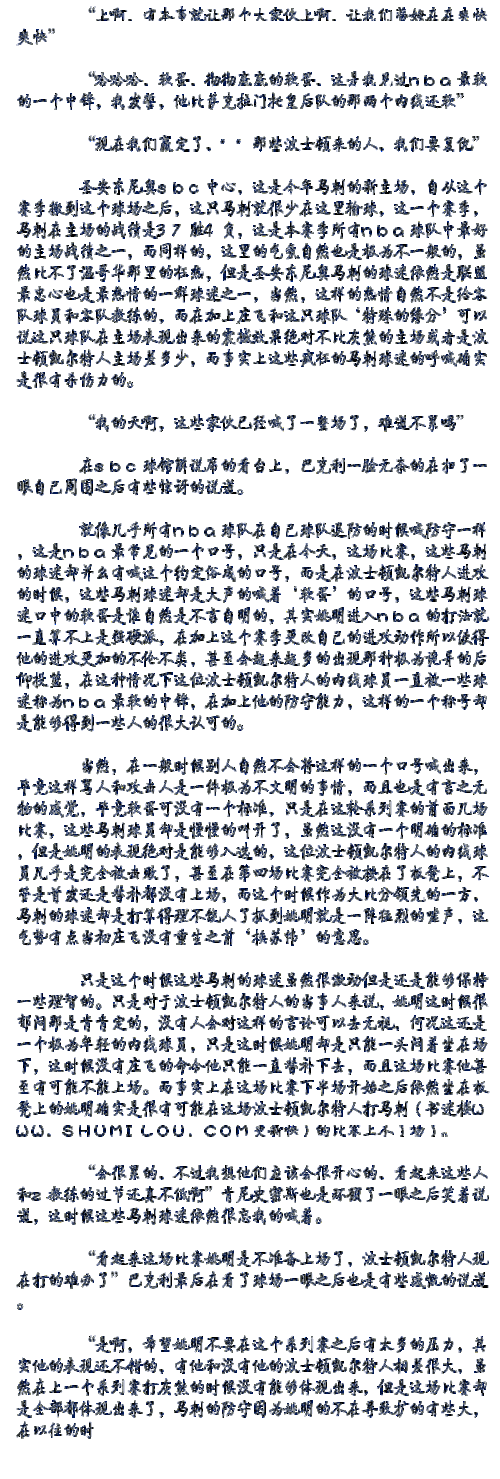 “上啊、有本事就让那个大家伙上啊、让我们蒂姆在在爽快
爽快”
“哈哈哈、软蛋、彻彻底底的软蛋、这是我见过nba最软
的一个中锋，我发誓，他比萨克拉门托皇后队的那两个内线还软”
“现在我们赢定了、**那些波士顿来的人，我们要复仇”
圣安东尼奥sbc中心，这是今年马刺的新主场，自从这个
赛季搬到这个球场之后，这只马刺就很少在这里输球，这一个赛季，
马刺在主场的战绩是37胜4负，这是本赛季所有nba球队中最好
的主场战绩之一，而同样的，这里的气氛自然也是极为不一般的，虽
然比不了温哥华那里的狂热，但是圣安东尼奥马刺的球迷依然是联盟
最忠心也是最热情的一群球迷之一，当然，这样的热情自然不是给客
队球员和客队教练的，而在加上庄飞和这只球队‘特殊的缘分’可以
说这只球队在主场表现出来的震撼效果绝对不比灰熊的主场或者是波
士顿凯尔特人主场差多少，而事实上这些疯狂的马刺球迷的呼喊确实
是很有杀伤力的。
“我的天啊，这些家伙已经喊了一整场了，难道不累吗”
在sbc球馆解说席的看台上，巴克利一脸无奈的在扫了一
眼自己周围之后有些惊讶的说道。
就像几乎所有nba球队在自己球队退防的时候喊防守一样
，这是nba最常见的一个口号，只是在今天，这场比赛，这些马刺
的球迷却并么有喊这个约定俗成的口号，而是在波士顿凯尔特人进攻
的时候，这些马刺球迷却是大声的喊着‘软蛋’的口号，这些马刺球
迷口中的软蛋是谁自然是不言自明的，其实姚明进入nba的打法就
一直算不上是强硬派，在加上这个赛季更改自己的进攻动作所以使得
他的进攻更加的不伦不类，甚至会越来越多的出现那种极为诡异的后
仰投篮，在这种情况下这位波士顿凯尔特人的内线球员一直被一些球
迷称为nba最软的中锋，在加上他的防守能力，这样的一个称号却
是能够得到一些人的很大认可的。
当然，在一般时候别人自然不会将这样的一个口号喊出来，
毕竟这样骂人和攻击人是一件极为不文明的事情，而且也是有言之无
物的感觉，毕竟软蛋可没有一个标准，只是在这轮系列赛的首面几场
比赛，这些马刺球员却是慢慢的叫开了，虽然这没有一个明确的标准
，但是姚明的表现绝对是能够入选的，这位波士顿凯尔特人的内线球
员几乎是完全被击败了，甚至在第四场比赛完全被按在了板凳上，不
管是首发还是替补都没有上场，而这个时候作为大比分领先的一方，
马刺的球迷却是打算得理不饶人了抓到姚明就是一阵猛烈的嘘声，这
气势有点当初庄飞没有重生之前‘换苏伟’的意思。
只是这个时候这些马刺的球迷虽然很激动但是还是能够保持
一些理智的。只是对于波士顿凯尔特人的当事人来说，姚明这时候很
郁闷那是肯肯定的，没有人会对这样的言论可以去无视，何况这还是
一个极为年轻的内线球员，只是这时候姚明却是只能一头闷着坐在场
下，这时候没有庄飞的命令他只能一直替补下去，而且这场比赛他甚
至有可能不能上场。而事实上在这场比赛下半场开始之后依然坐在板
凳上的姚明确实是很有可能在这场波士顿凯尔特人打马刺（书迷楼W
WW．SHUMILOU．COM更新快）的比赛上不了场了。
“会很累的、不过我想他们应该会很开心的、看起来这些人
和z教练的过节还真不低啊”肯尼史密斯也是环顾了一眼之后笑着说
道，这时候这些马刺球迷依然很忘我的喊着。
“看起来这场比赛姚明是不准备上场了，波士顿凯尔特人现
在打的难办了”巴克利最后在看了球场一眼之后也是有些感慨的说道
。
“是啊，希望姚明不要在这个系列赛之后有太多的压力，其
实他的表现还不错的，有他和没有他的波士顿凯尔特人相差很大，虽
然在上一个系列赛打灰熊的时候没有能够体现出来，但是这场比赛却
是全部都体现出来了，马刺的防守因为姚明的不在导致扩的有些大，
在以往的时